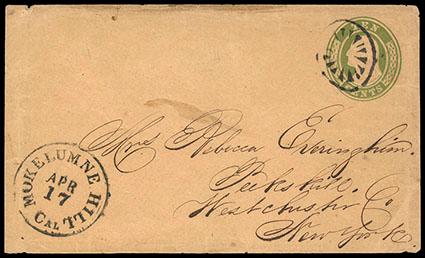 TEN
CENTS
Mrs Rebecca Everinghim.
Peekskill.
Westchester Co
New York
MOKELUMNE HILL
APR
17
CAL